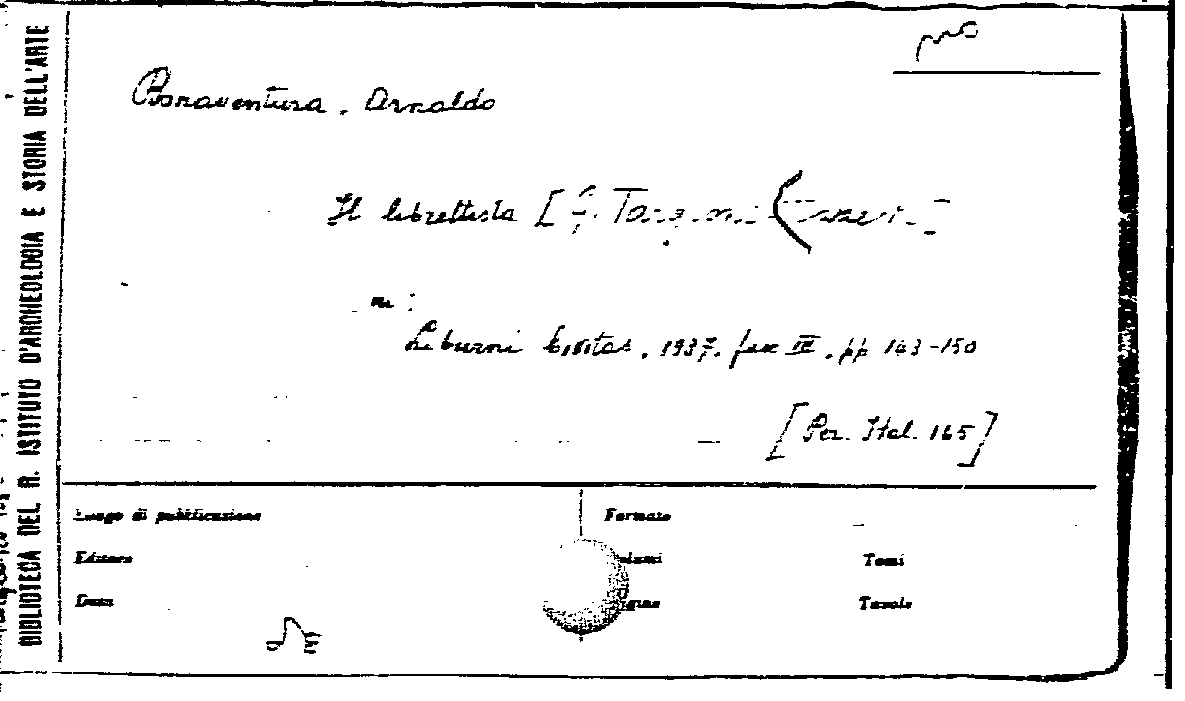 BIBLIOTECA DEL R. ISTITUTO D'ARCHEOLOGIA E STORIA DELL'ARTE
Bonaventura, Arnaldo
Il librettista [G. Targioni
in:
Liburni Civitas, 1937, fasc III, pp 143-150
[Per. Ital. 165]
Luogo di pubblicazione
Formato
Editore
Tomi
Data
Tavole